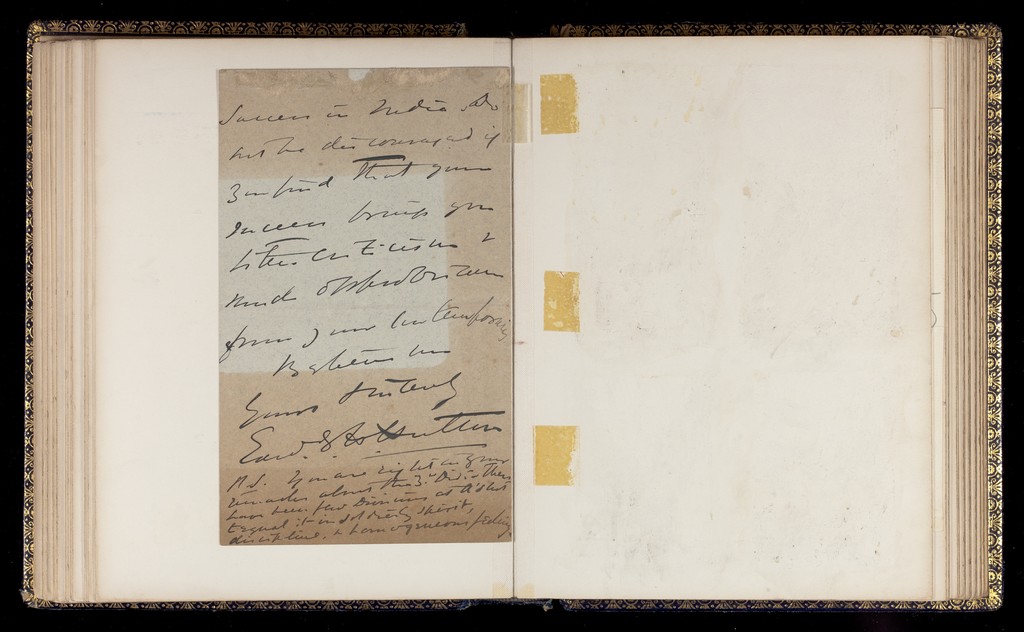 Success in India. Do
not be discouraged if
you find that your
success brings you
bitter criticism &
much opposition
from your contemporaries
Believe me
Yours sincerely
Edw. Hutton
P.S. You are right in your
remarks about the 3rd Div: there
have been few Divisions at A'shot
to equal it in soldierly spirit,
discipline, & homogeneous feeling.